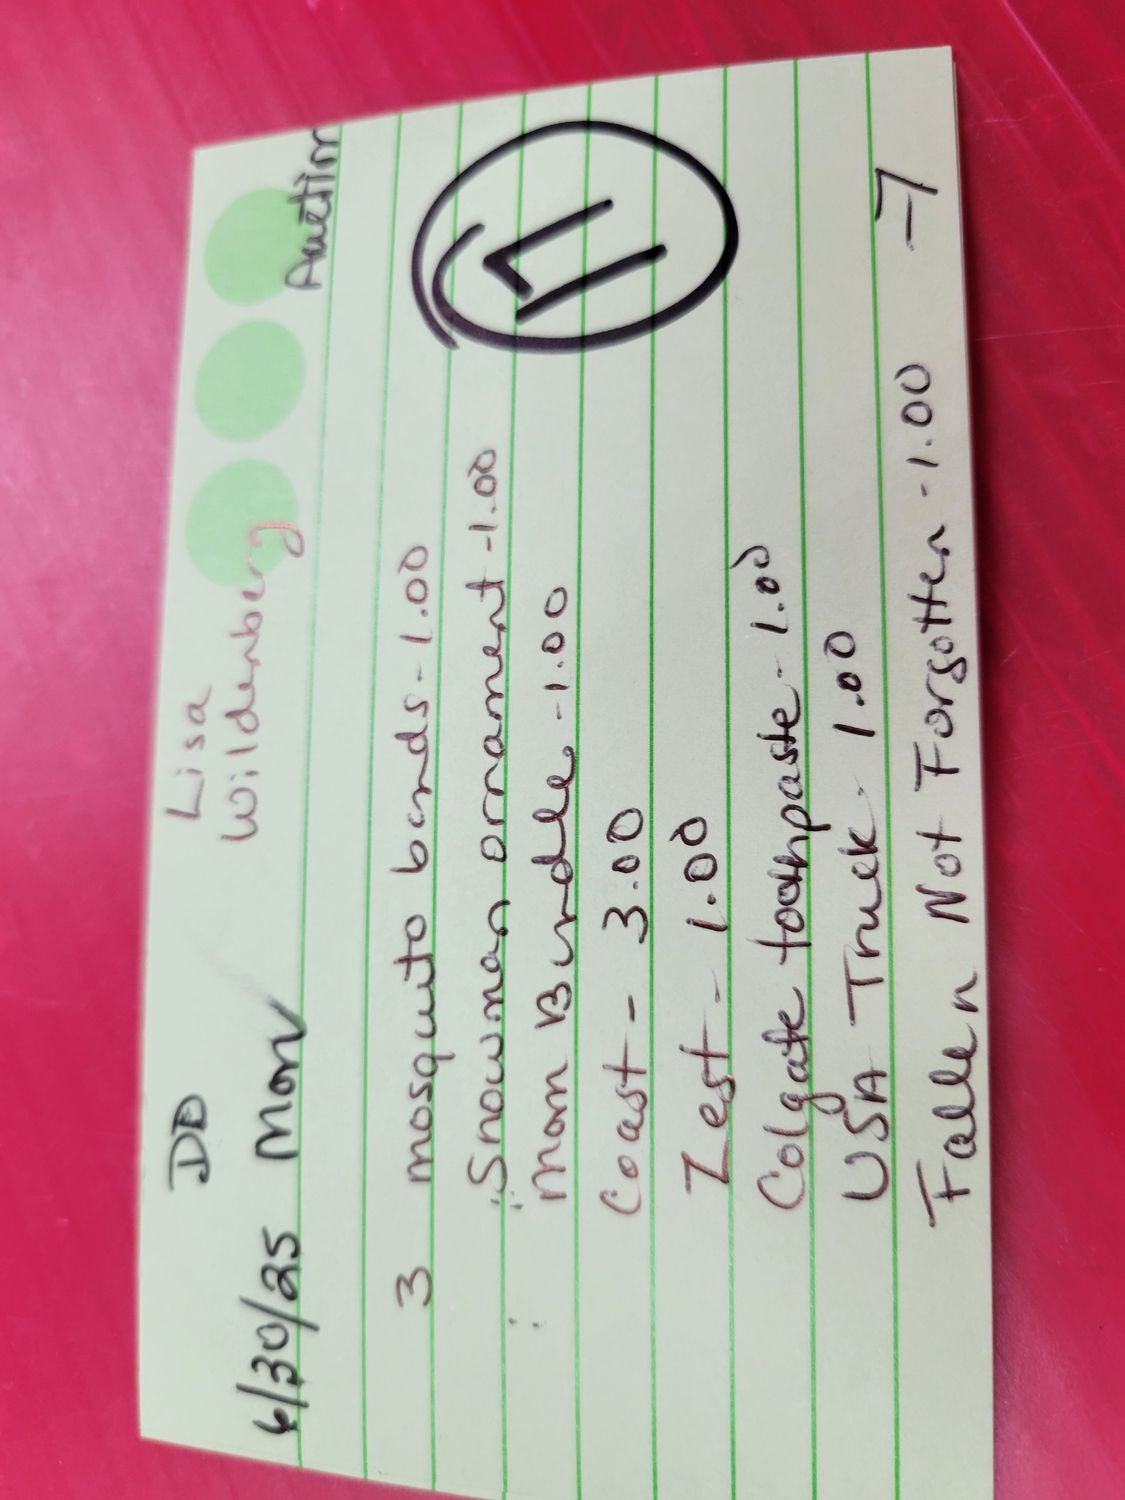 DD
Lisa
Wildenberg
6/30/25 Mon
Auction
3 mosquito bands - 1.00
Snowman ornament - 1.00
Mom Bundle - 1.00
Coast - 3.00
Zest - 1.00
Colgate toothpaste - 1.00
USA Truck - 1.00
Fallen Not Forgotten - 1.00